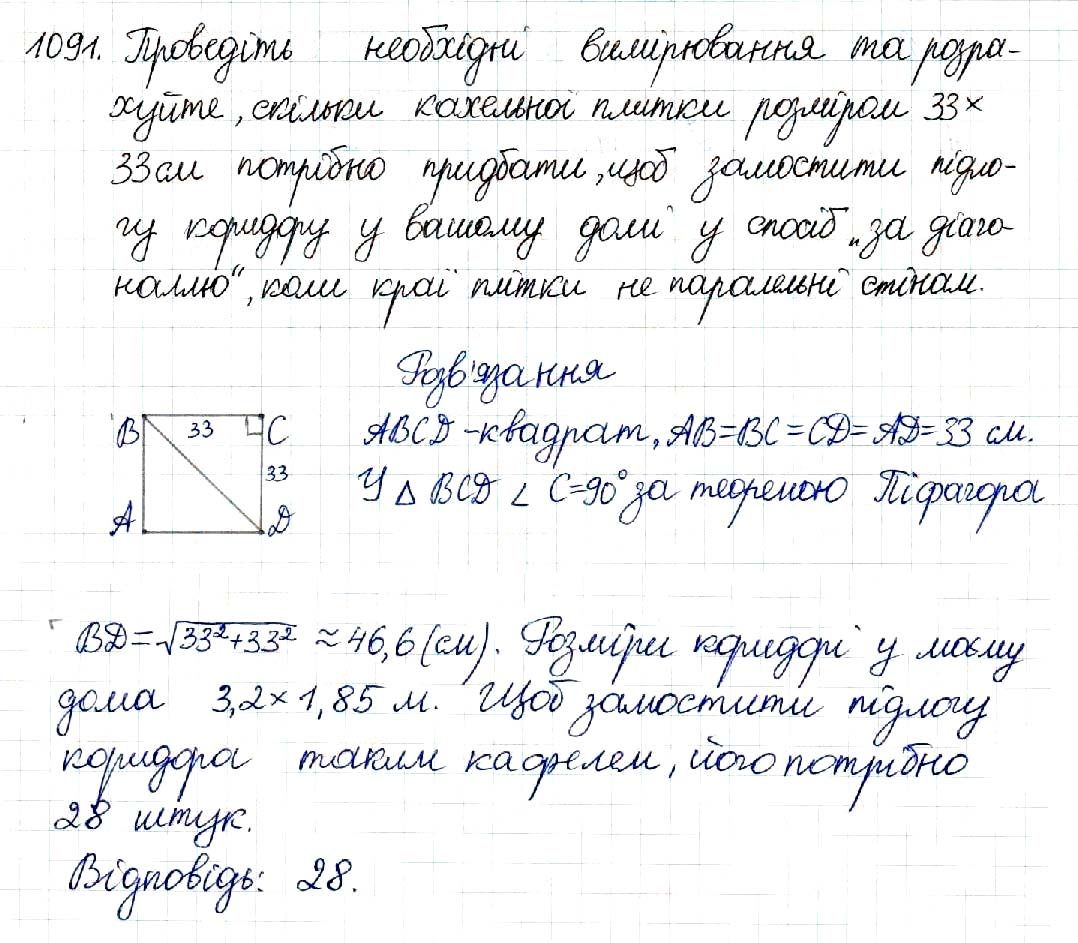 1091. Проведіть необхідні вимірювання та розра-
хуйте, скільки кахельної плитки розміром 33×
33 см потрібно придбати, щоб замостити підло-
гу коридору у вашому домі у спосіб „за діаго-
наллю“, коли краї плітки не паралельні стінам.
Розв'язання
B 33 C
33
A D
ABCD - квадрат, AB=BC=CD=AD=33 см.
У △ BCD ∠ C=90° за теоремою Піфагора
BD=√33²+33² ≈ 46,6 (см). Розміри коридорі у моєму
дома 3,2×1,85 м. Щоб замостити підлогу
коридора таким кафелем, його потрібно
28 штук.
Відповідь: 28.